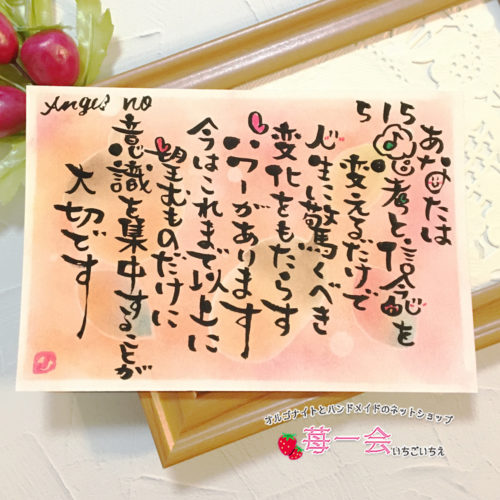 Angel no
515
あなたは
思考と信念を
変えるだけで
人生に驚くべき
変化をもたらす
パワーがあります
今はこれまで以上に
望むものだけに
意識を集中することが
大切です
オルゴナイトとハンドメイドのネットショップ
苺一会いちごいちえ